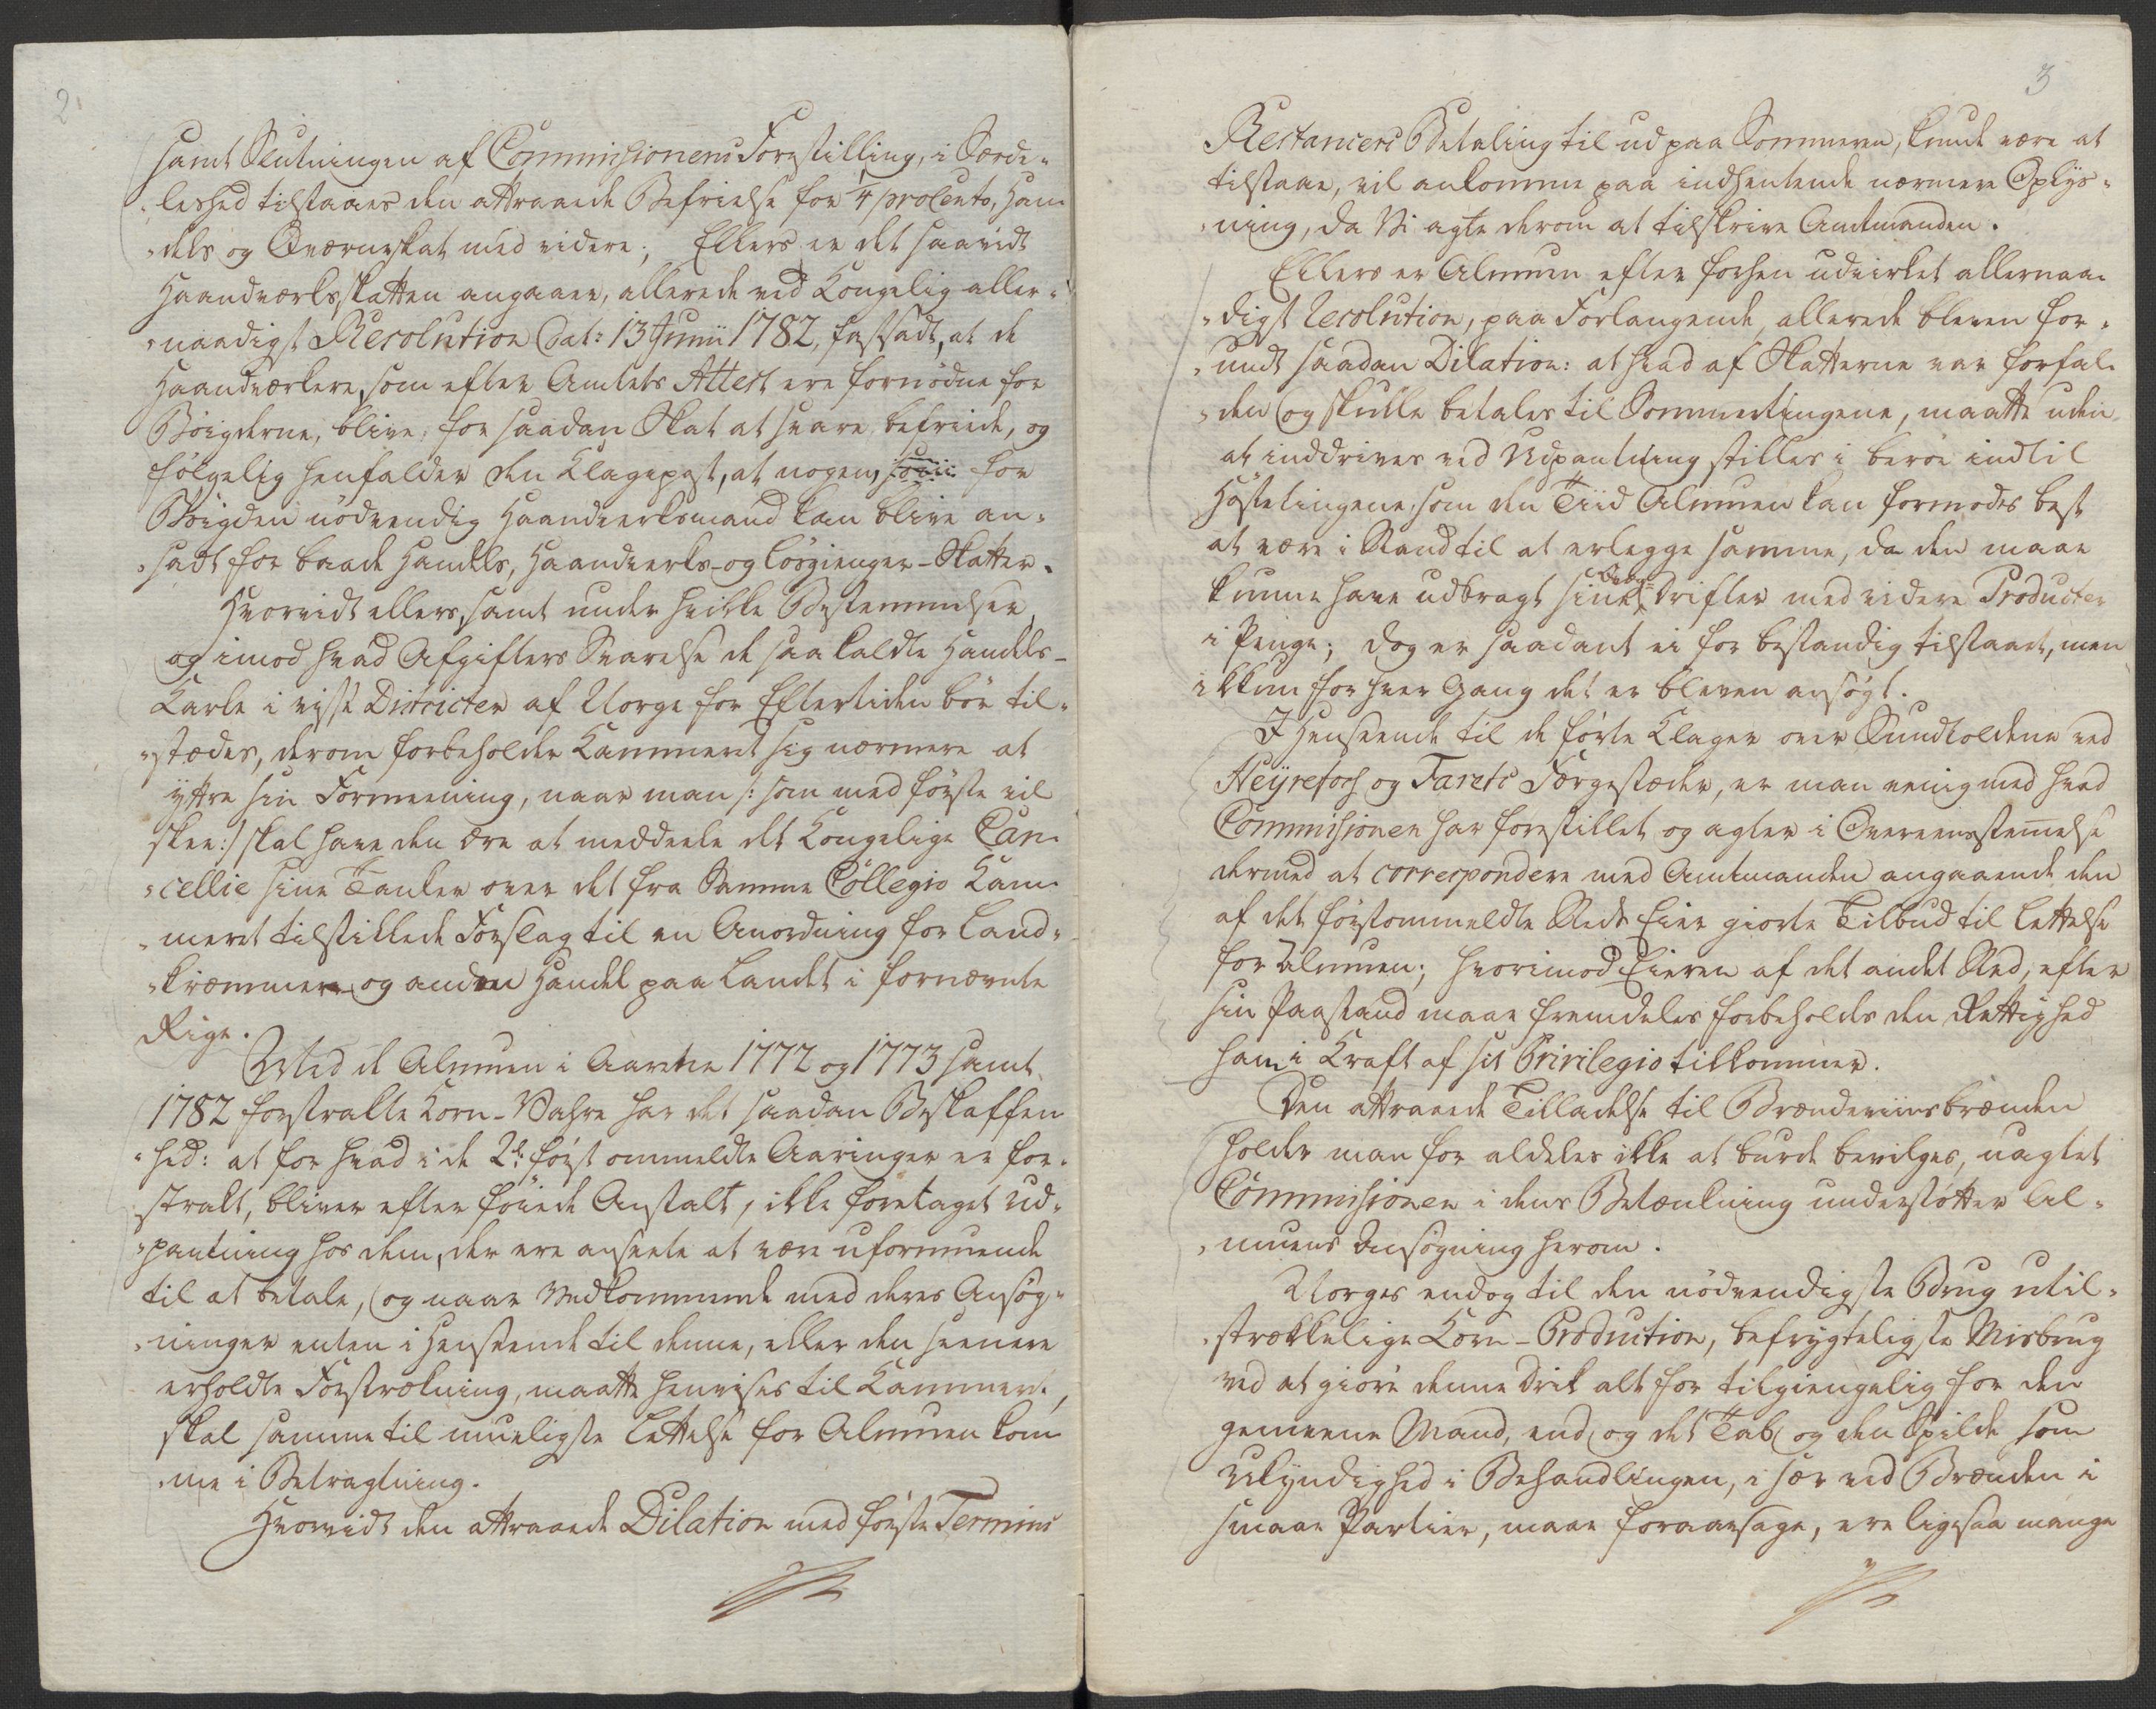 2
samt Slutningen af Commissionens Forestilling, i Særde-
leshed tilstaaes den attraaede Befrielse for 4 proCento, Han-
dels og Qværneskat med videre; Ellers er det saavidt
Haandværksskatten angaaer, allerede ved Kongelig aller-
naadigst Resolution Dat: 13 Junii 1782, fastsadt, at de
Haandværkere, som efter Amtets Attest ere fornødne for
Bøigderne, blive, for saadan Skat at svare, befriede, og
følgelig henfalder den Klagepost, at nogen, som for
Bøigden nødvendig Haandverksmand kan blive an-
sadt for baade Handels, Haandverks- og Løsgienger-Skatter.
Hvorvidt ellers, samt under hvilke Bestemmelser,
og imod hvad Afgifters Svarelse de saa kaldte Handels-
Karle i visse Districter af Norge for Eftertiden bør til-
stædes, derom forbeholder Kammeret sig nærmere at
yttre sin Formeening, naar man /: som med første vil
skee :/ skal have den ære at meddeele det Kongelige Can-
cellie sine Tanker over det fra Samme Collegio Kam-
meret tilstillede Forslag til en Anordning for Land-
kræmmere og anden Handel paa Landet i fornævnte
Rige.
Med de Almuen i Aarene 1772 og 1773 samt
1782 forstrakte Korn-Vahre har det saadan Beskaffen-
hed: at for hvad i de 2de først ommeldte Aaringer er for-
strakt, bliver efter føiede Anstalt, ikke foretaget Ud-
pantning hos dem, der ere anseete at være uformuende
til at betale, og naar Vedkommende med deres Ansøg-
ninger enten i Henseende til denne, eller den seenere
erholdte Forstrækning, maatte henvises til Kammeret,
skal samme til mueligste Lettelse for Almuen kom-
me i Betragtning.
Hvorvidt den attraaede Dilation med første Termins
3
Restancers Betaling til ud paa Sommeren, kunde være at
tilstaae, vil ankomme paa indhentende nærmere Oplys-
ning, da Vi agte derom at tilskrive Amtmanden.
Ellers er Almuen efter forhen udvirket allernaa-
digst Resolution, paa Forlangende, allerede bleven for-
undt saadan Dilation: at hvad af Skatterne var forfal-
den og skulle betales til Sommertingene, maatte uden
at inddrives ved Udpantning stilles i beroe indtil
Høstetingene, som den Tiid Almuen kan formodes best
at være i Stand til at erlegge samme, da den maae
kunne have udbragt sine Drifter med videre Producter
i Penge; dog er saadant ei for bestandig tilstaaet, men
ikkun for hver Gang det er bleven ansøgt.
I Henseende til de førte Klager over Sundtoldene ved
Neÿrefos og Farets Færgestæder, er man eenig med hvad
Commissionen har forestillet og agter i Overeensstemmelse
dermed at correspondere med Amtmanden angaaende den
af det førstommeldte Steds Eier giorte Tilbud til Lettelse
for Almuen; hvorimod Eieren af det andet Sted, efter
sin Paastand maae fremdeles forbeholdes den Rettighed
ham i Kraft af sit Privilegio tilkommer.
Den attraaede Tilladelse til Brændeviinsbrænden
holder man for aldeles ikke at burde bevilges, uagtet
Commissionen i dens Betænkning understøtter Al-
muens Ansøgning herom.
Norges endog til den nødvendigste Brug util-
strækkelige Korn-Production, befrygteligste Misbrug
ved at giøre denne Drik alt for tilgiengelig for den
gemeene Mand, end og det Tab og den Spilde som
Ukyndighed i Behandlingen, i sær ved Brænden i
smaae Partier, maae foraarsage, ere ligesaa mange